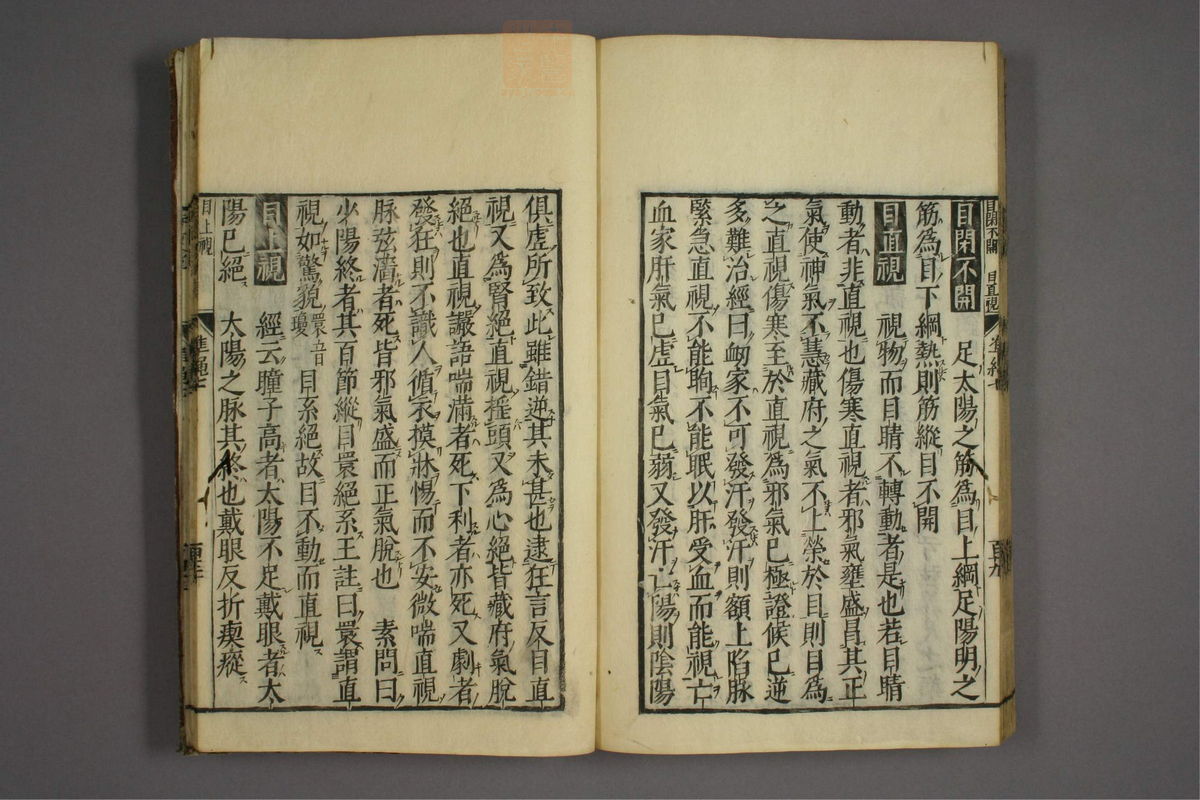 目閉不開　足太陽之筋爲目上綱足陽明之
筋爲目下綱熱則筋縱目不開
目直視　視物而目睛不轉動者是也若目睛
動者非直視也傷寒直視者邪氣壅盛冒其正
氣使神氣不慧藏府之氣不上榮於目則目爲
之直視傷寒至於直視爲邪氣已極證候已逆
多難治經曰衂家不可發汗發汗則額上陷脉
緊急直視不能眴不能眠以肝受血而能視亡
血家肝氣已虛目氣已弱又發汗亡陽則陰陽
俱虛所致此雖錯逆其未甚也逮狂言反目直
視又爲腎絕直視揺頭又爲心絕皆藏府氣脫
絕也直視讝語喘滿者死下利者亦死又劇者
發狂則不識人循衣摸牀惕而不安微喘直視
脉弦濇者死皆邪氣盛而正氣脫也　素問曰
少陽終者其百節縱目睘絕系王註曰睘謂直
視如驚貌睘音瓊目系絕故目不動而直視
目上視　經云瞳子高者太陽不足戴眼者太
陽已絕　太陽之脉其終也戴眼反折瘈瘲
目上視